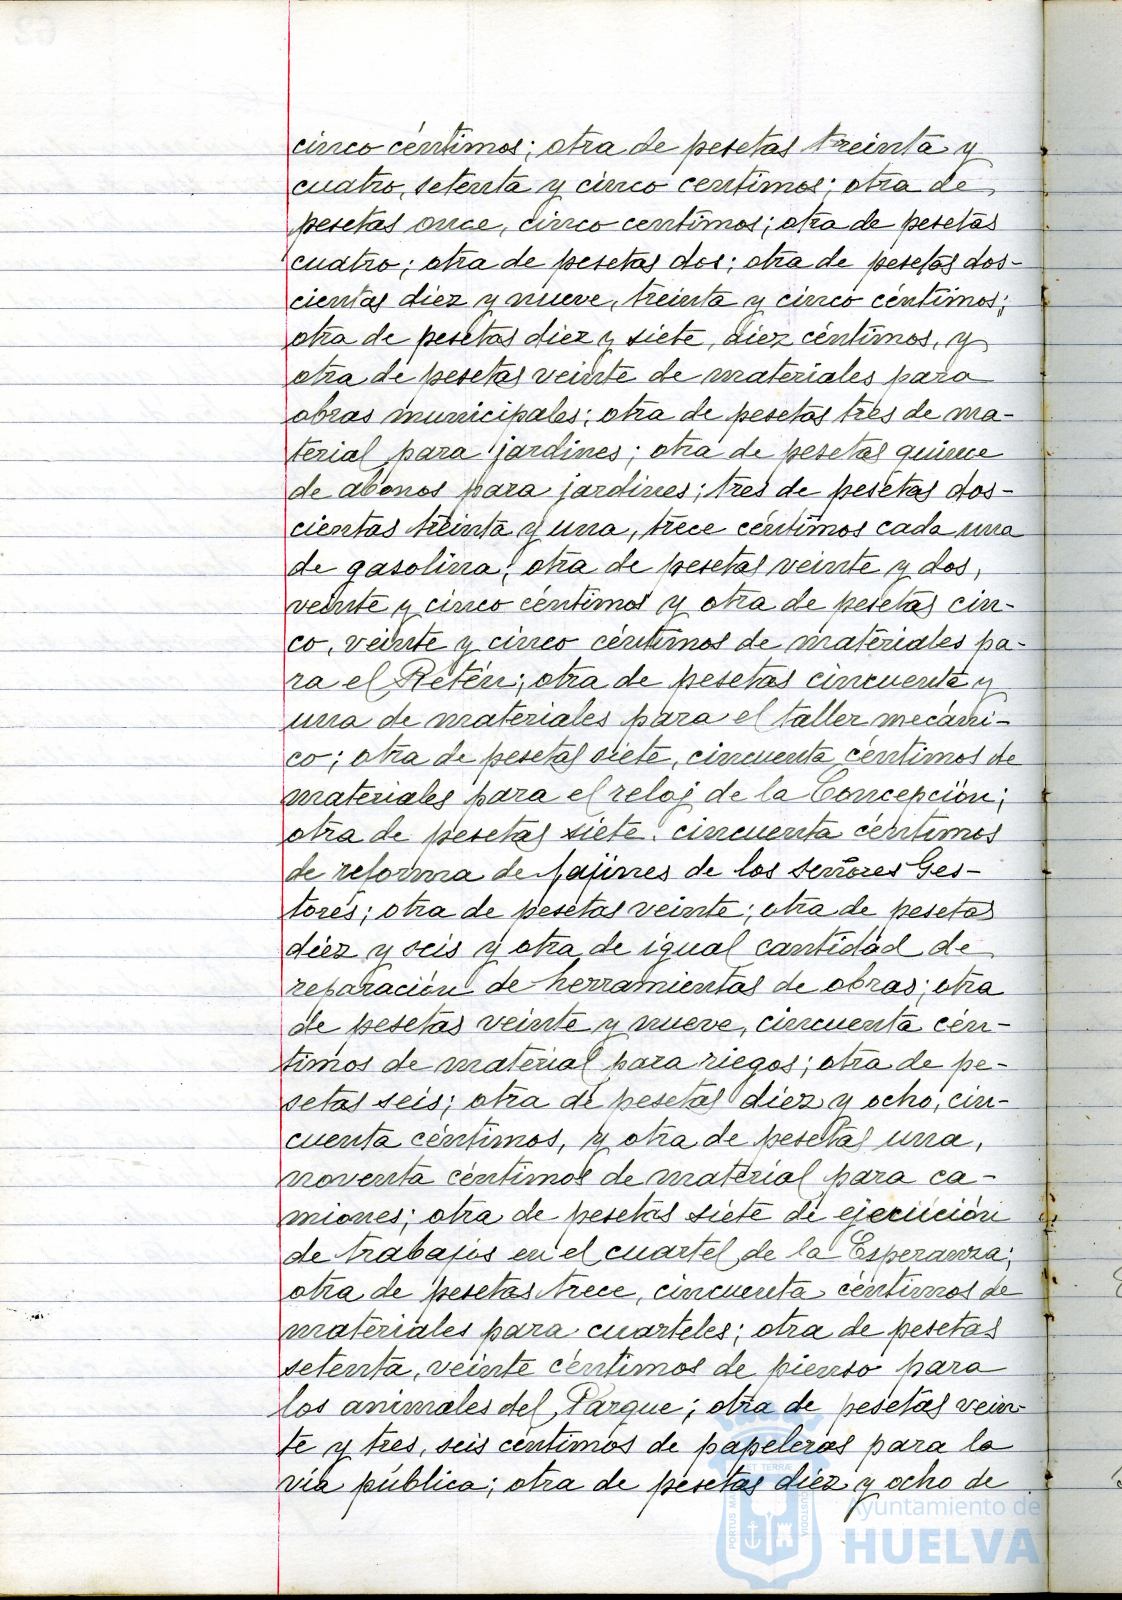 cinco céntimos; otra de pesetas treinta y
cuatro, setenta y cinco centimos; otra de
pesetas once, cinco centimos; otra de pesetas
cuatro; otra de pesetas dos; otra de pesetas dos-
cientas diez y nueve, treinta y cinco céntimos;
otra de pesetas diez y siete, diez céntimos, y
otra de pesetas veinte de materiales para
obras municipales; otra de pesetas tres de ma-
terial para jardines; otra de pesetas quince
de abonos para jardines; tres de pesetas dos-
cientas treinta y una, trece centimos cada una
de gasolina; otra de pesetas veinte y dos,
veinte y cinco céntimos y otra de pesetas cin-
co, veinte y cinco céntimos de materiales pa-
ra el Retén; otra de pesetas cincuenta y
una de materiales para el taller mecáni-
co; otra de pesetas siete, cincuenta céntimos de
materiales para el reloj de la Concepción;
otra de pesetas siete, cincuenta céntimos
de reforma de fajines de los señores Ges-
tores; otra de pesetas veinte; otra de pesetas
diez y seis y otra de igual cantidad de
reparación de herramientas de obras; otra
de pesetas veinte y nueve, cincuenta cén-
timos de material para riegos; otra de pe-
setas seis; otra de pesetas diez y ocho, cin-
cuenta céntimos, y otra de pesetas una,
noventa céntimos de material para ca-
miones; otra de pesetas siete de ejecución
de trabajos en el cuartel de la Esperanza;
otra de pesetas trece, cincuenta céntimos de
materiales para cuarteles; otra de pesetas
setenta, veinte céntimos de pienso para
los animales del Parque; otra de pesetas vein-
te y tres, seis céntimos de papeleras para la
vía pública; otra de pesetas diez y ocho de
Ayuntamiento de
HUELVA